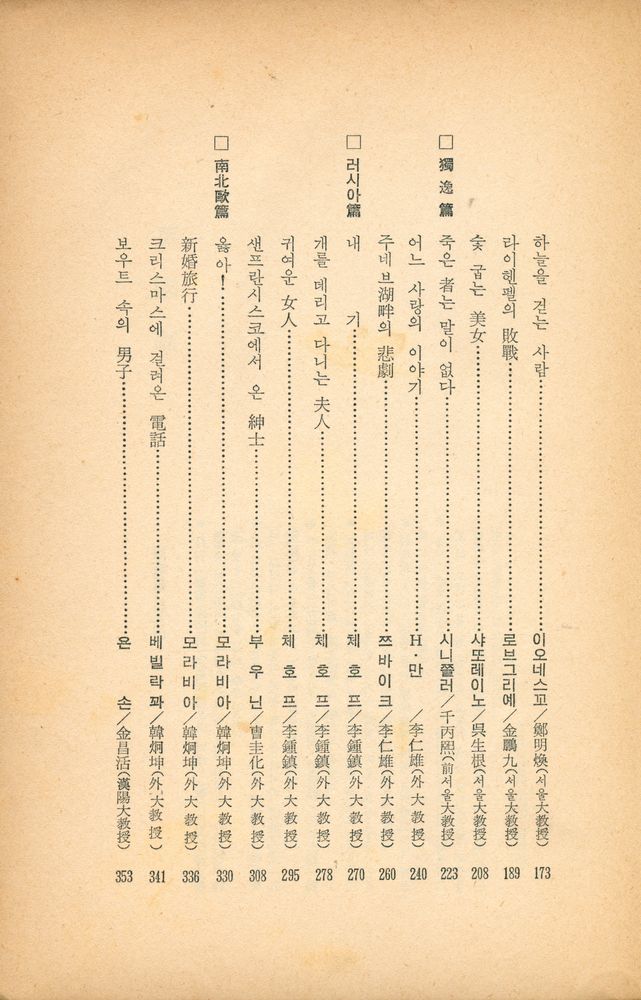 하늘을 걷는 사람……이오네스꼬／鄭明煥(서울大教授) 173
라이헨펠의 敗戰……로브그리예／金鵬九(서울大教授) 189
숯 굽는 美女……샤또레이노／吳生根(서울大教授) 208
□ 獨逸篇
죽은 者는 말이 없다……시니쯜러／千丙熙(前서울大教授) 223
어느 사랑의 이야기……H·만／李仁雄(外大教授) 240
주네브湖畔의 悲劇……쯔바이크／李仁雄(外大教授) 260
□ 러시아篇
내기……체호프／李鍾鎭(外大教授) 270
개를 데리고 다니는 夫人……체호프／李鍾鎭(外大教授) 278
귀여운 女人……체호프／李鍾鎭(外大教授) 295
샌프란시스코에서 온 紳士……부우닌／曺圭化(外大教授) 308
□ 南北歐篇
옳아!……모라비아／韓炯坤(外大教授) 330
新婚旅行……모라비아／韓炯坤(外大教授) 336
크리스마스에 걸려온 電話……베빌락꽈／韓炯坤(外大教授) 341
보우트 속의 男子……욘손／金昌活(漢陽大教授) 353